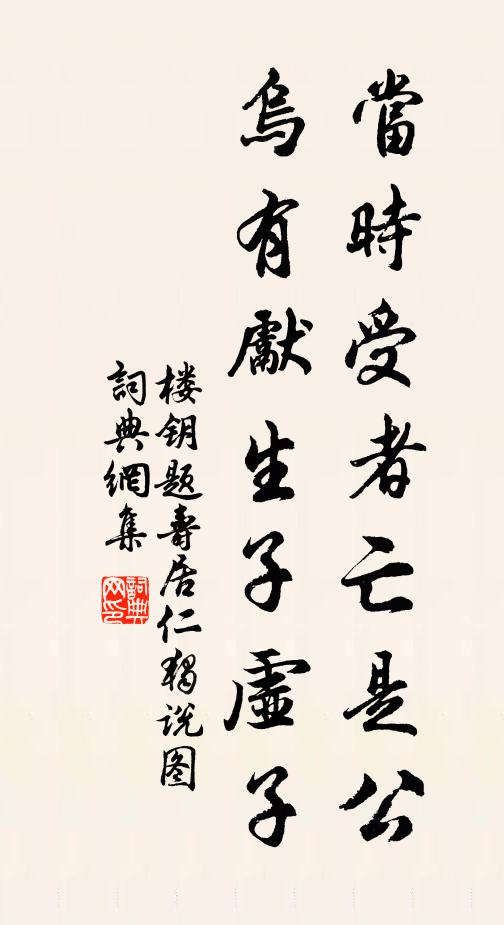 當時受者亡是公
烏有獻生子虛子
楼钥题壽居仁猲说图
詞典網集
詞典
网印